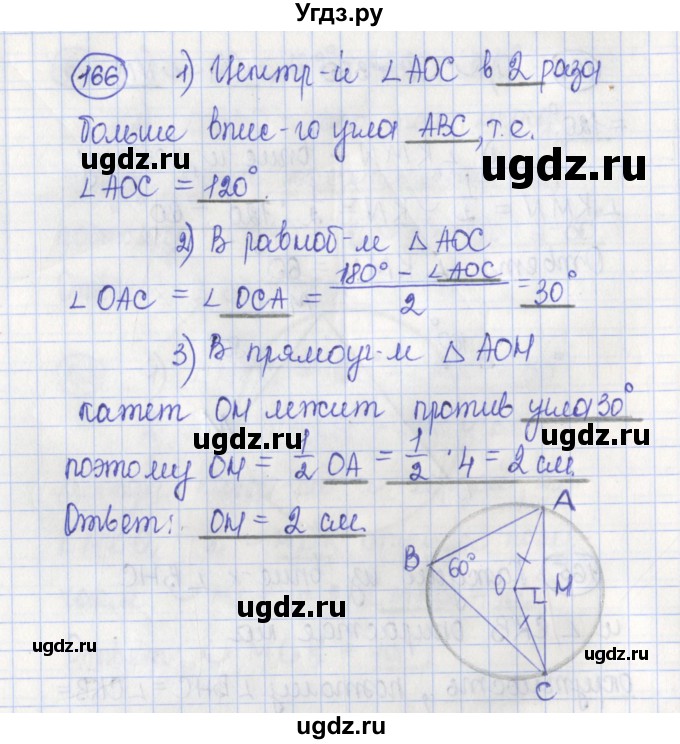 Угдз.ру
166 1) Центр-й ∠AOC в 2 раза
больше впис-го угла ABC, т.е.
∠AOC = 120°.
2) В равноб-м △AOC
∠OAC = ∠OCA = (180° − ∠AOC)/2 = 30°
3) В прямоуг-м △AOM
катет OM лежит против угла 30°
поэтому OM = 1/2 OA = 1/2 · 4 = 2 см.
Ответ: OM = 2 см.
A
B
60°
O
M
C
ugdz.ru
ugdz.ru
ugdz.ru
ugdz.ru
ugdz.ru
ugdz.ru
ugdz.ru
ugdz.ru
ugdz.ru